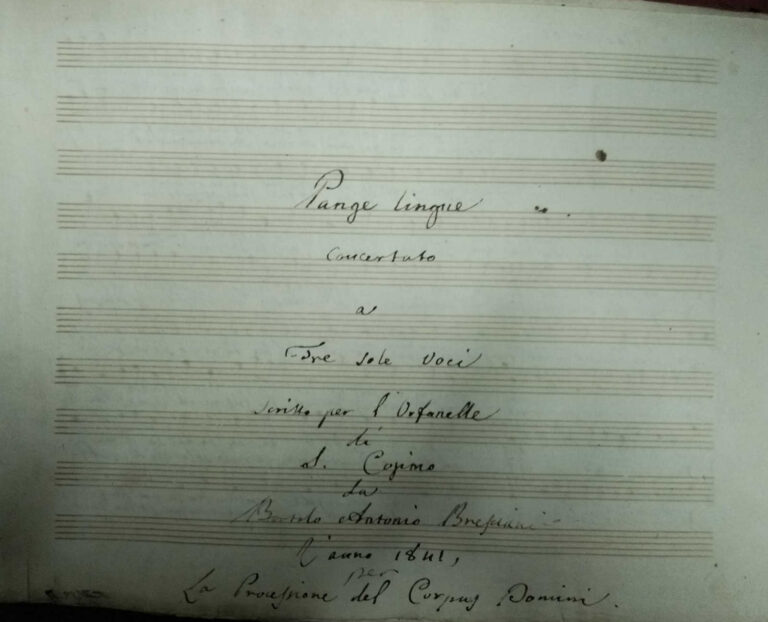 Pange lingue
Concertato
a
Tre sole voci
scritto per l'Orfanelle
di
S. Cosimo
da
Bortolo Antonio Bresciani
L'anno 1841,
per
La Processione del Corpus Domini.